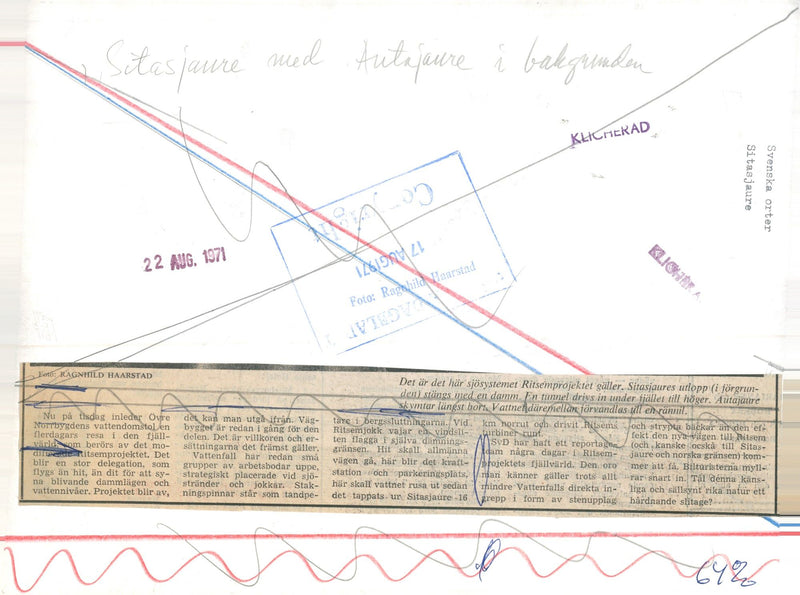 Sitasjaure med Autajaure i bakgrunden
KLICHERAD
Svenska orter
Sitasjaure
22 AUG. 1971
Copyright
17 AUG 1971
Foto: Ragnhild Haarstad
DAGBLAT
KLICHERA
Foto: RAGNHILD HAARSTAD
Det är det här sjösystemet Ritsemprojektet gäller. Sitasjaures utlopp (i förgrun-
den) stängs med en damm. En tunnel drivs in under fjället till höger. Autajaure
skymtar längst bort. Vattnet däremellan förvandlas till en rännil.
Nu på tisdag inleder Övre
Norrbygdens vattendomstol en
flerdagars resa i den fjäll-
värld som berörs av det mo-
Ritsemprojektet. Det
blir en stor delegation, som
flygs än hit, än dit för att sy-
na blivande dammlägen och
vattennivåer. Projektet blir av,
det kan man utgå ifrån. Väg-
bygget är redan i gång för den
delen. Det är villkoren och er-
sättningarna det främst gäller.
Vattenfall har redan små
grupper av arbetsbodar uppe,
strategiskt placerade vid sjö-
stränder och jokkar. Stak-
ningspinnar står som tandpe-
tare i bergssluttningarna. Vid
Ritsemjokk vajar en vindsli-
ten flagga i själva dämnings-
gränsen. Hit skall allmänna
vägen gå, här blir det kraft-
station och parkeringsplats,
här skall vattnet rusa ut sedan
det tappats ur Sitasjaure 16
km norrut och drivit Ritsems
turbiner runt.
SvD har haft ett reportage-
team några dagar i Ritsem-
projektets fjällvärld. Den oro
man känner gäller trots allt
mindre Vattenfalls direkta in-
grepp i form av stenupplag
och strypta bäckar än den ef-
fekt den nya vägen till Ritsem
(och kanske också till Sitas-
jaure och norska gränsen) kom-
mer att få. Bilturisterna myll-
rar snart in. Tål denna käns-
liga och sällsynt rika natur ett
hårdnande slitage?